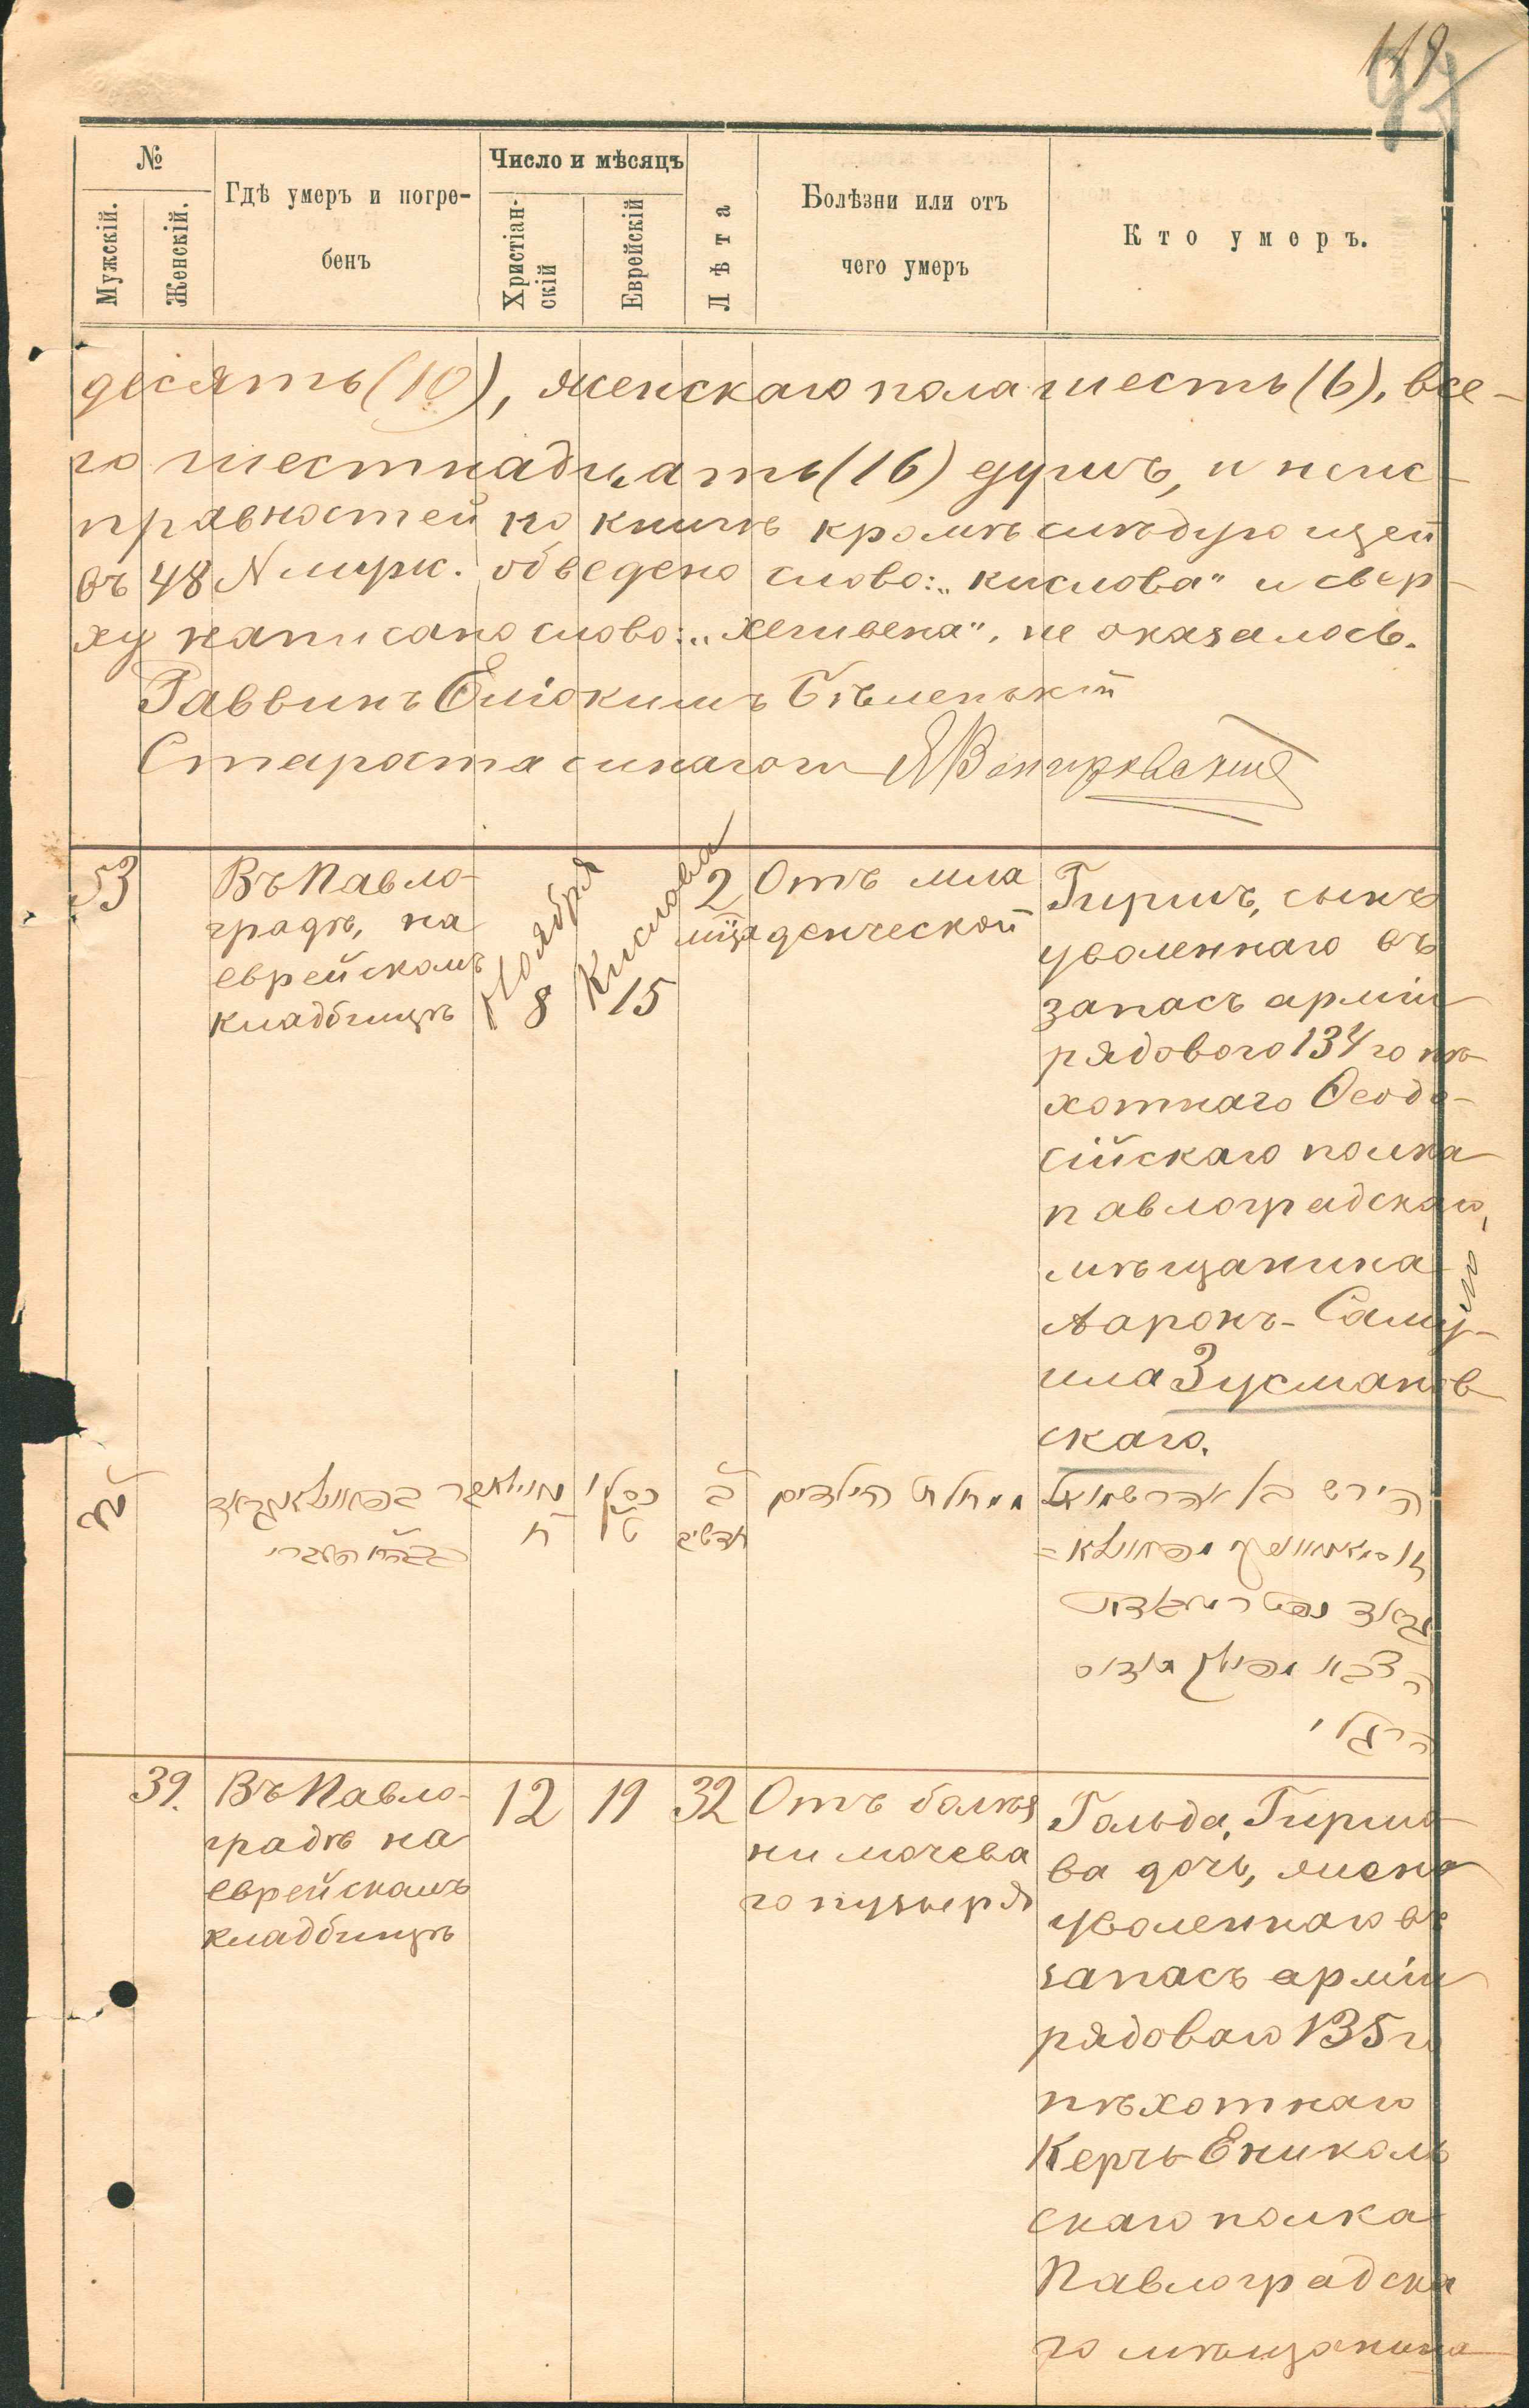 119
97
№
Число и мѣсяцъ
Гдѣ умеръ и погре-
бенъ
Мужскій.
Женскій.
Христіан-
скій
Еврейскій
Лѣта
Болѣзни или отъ
чего умеръ
Кто умеръ.
десять (10), женскаго пола шесть (6), все-
го шестнадцать (16) душъ, и неис-
правностей по книгѣ кромѣ слѣдующей
въ 48 N мужс. обведено слово: „кислова" и свер-
ху написано слово: „Хешвена", не оказалось.
Раввинъ Еліокимъ Бѣленькій
Староста синагоги
53
Въ Павло-
градѣ, на
еврейскомъ
кладбищѣ
Ноября
8
Кислова
15
2
мѣца
Отъ мла
денческой
Гиршъ, сынъ
уволеннаго въ
запасъ арміи
рядового 134 го пѣ
хотнаго Ѳеодо-
сійскаго полка
павлоградскаго
мѣщанина
Ааронъ-Саму-
ила Зусманов
скаго.
נג
בפאוולאגראד
נויאבר
ח
כסלו
טו
ב
חדשים
ממחלת הילדים
הירש בן
39.
Въ Павло-
градѣ на
еврейскомъ
кладбищѣ
12
19
32
Отъ болѣз
ни мочева
го пузыря
Гольда, Гиршо
ва дочь, жена
уволеннаго въ
запасъ арміи
рядоваго 135 го
пѣхотнаго
Керчь-Ениколь
скаго полка
Павлоградска
го мѣщанина